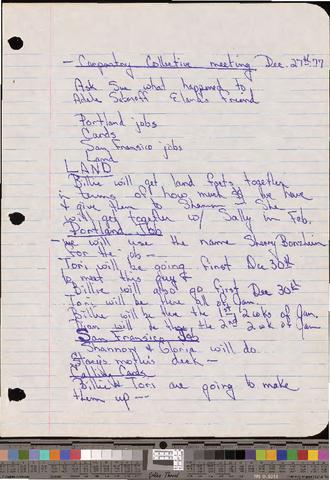 - Carpentry Collective meeting Dec. 27th. 77
Ask Sue what happened to
Adele friend
Portland jobs
Cards
San Fransico jobs
Land
LAND
Billie will get land facts together
in terms of how much $ we have
& give them to Shannon & She
will get together w/ Sally in Feb.
Portland Job
- we will use the name Sherry
for the job --
Tori will be going first Dec 30th
to meet this guy &
Billie will also go first Dec 30th
Tori will be there all of Jan.
Billie will be there the 1st 2 wks of Jan.
will be there the 2nd 2 wk of Jan
San Fransico Job
Shannon & Gloria will do.
mother's deck -
Cards
Billie & Tori are going to make
them up ---